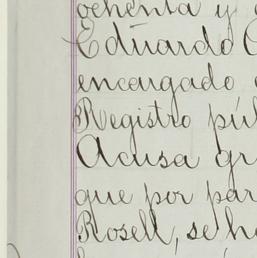 ochenta y
Eduardo
encargado
Registro púb
Acusa gr
que por par
Rosell, se ha